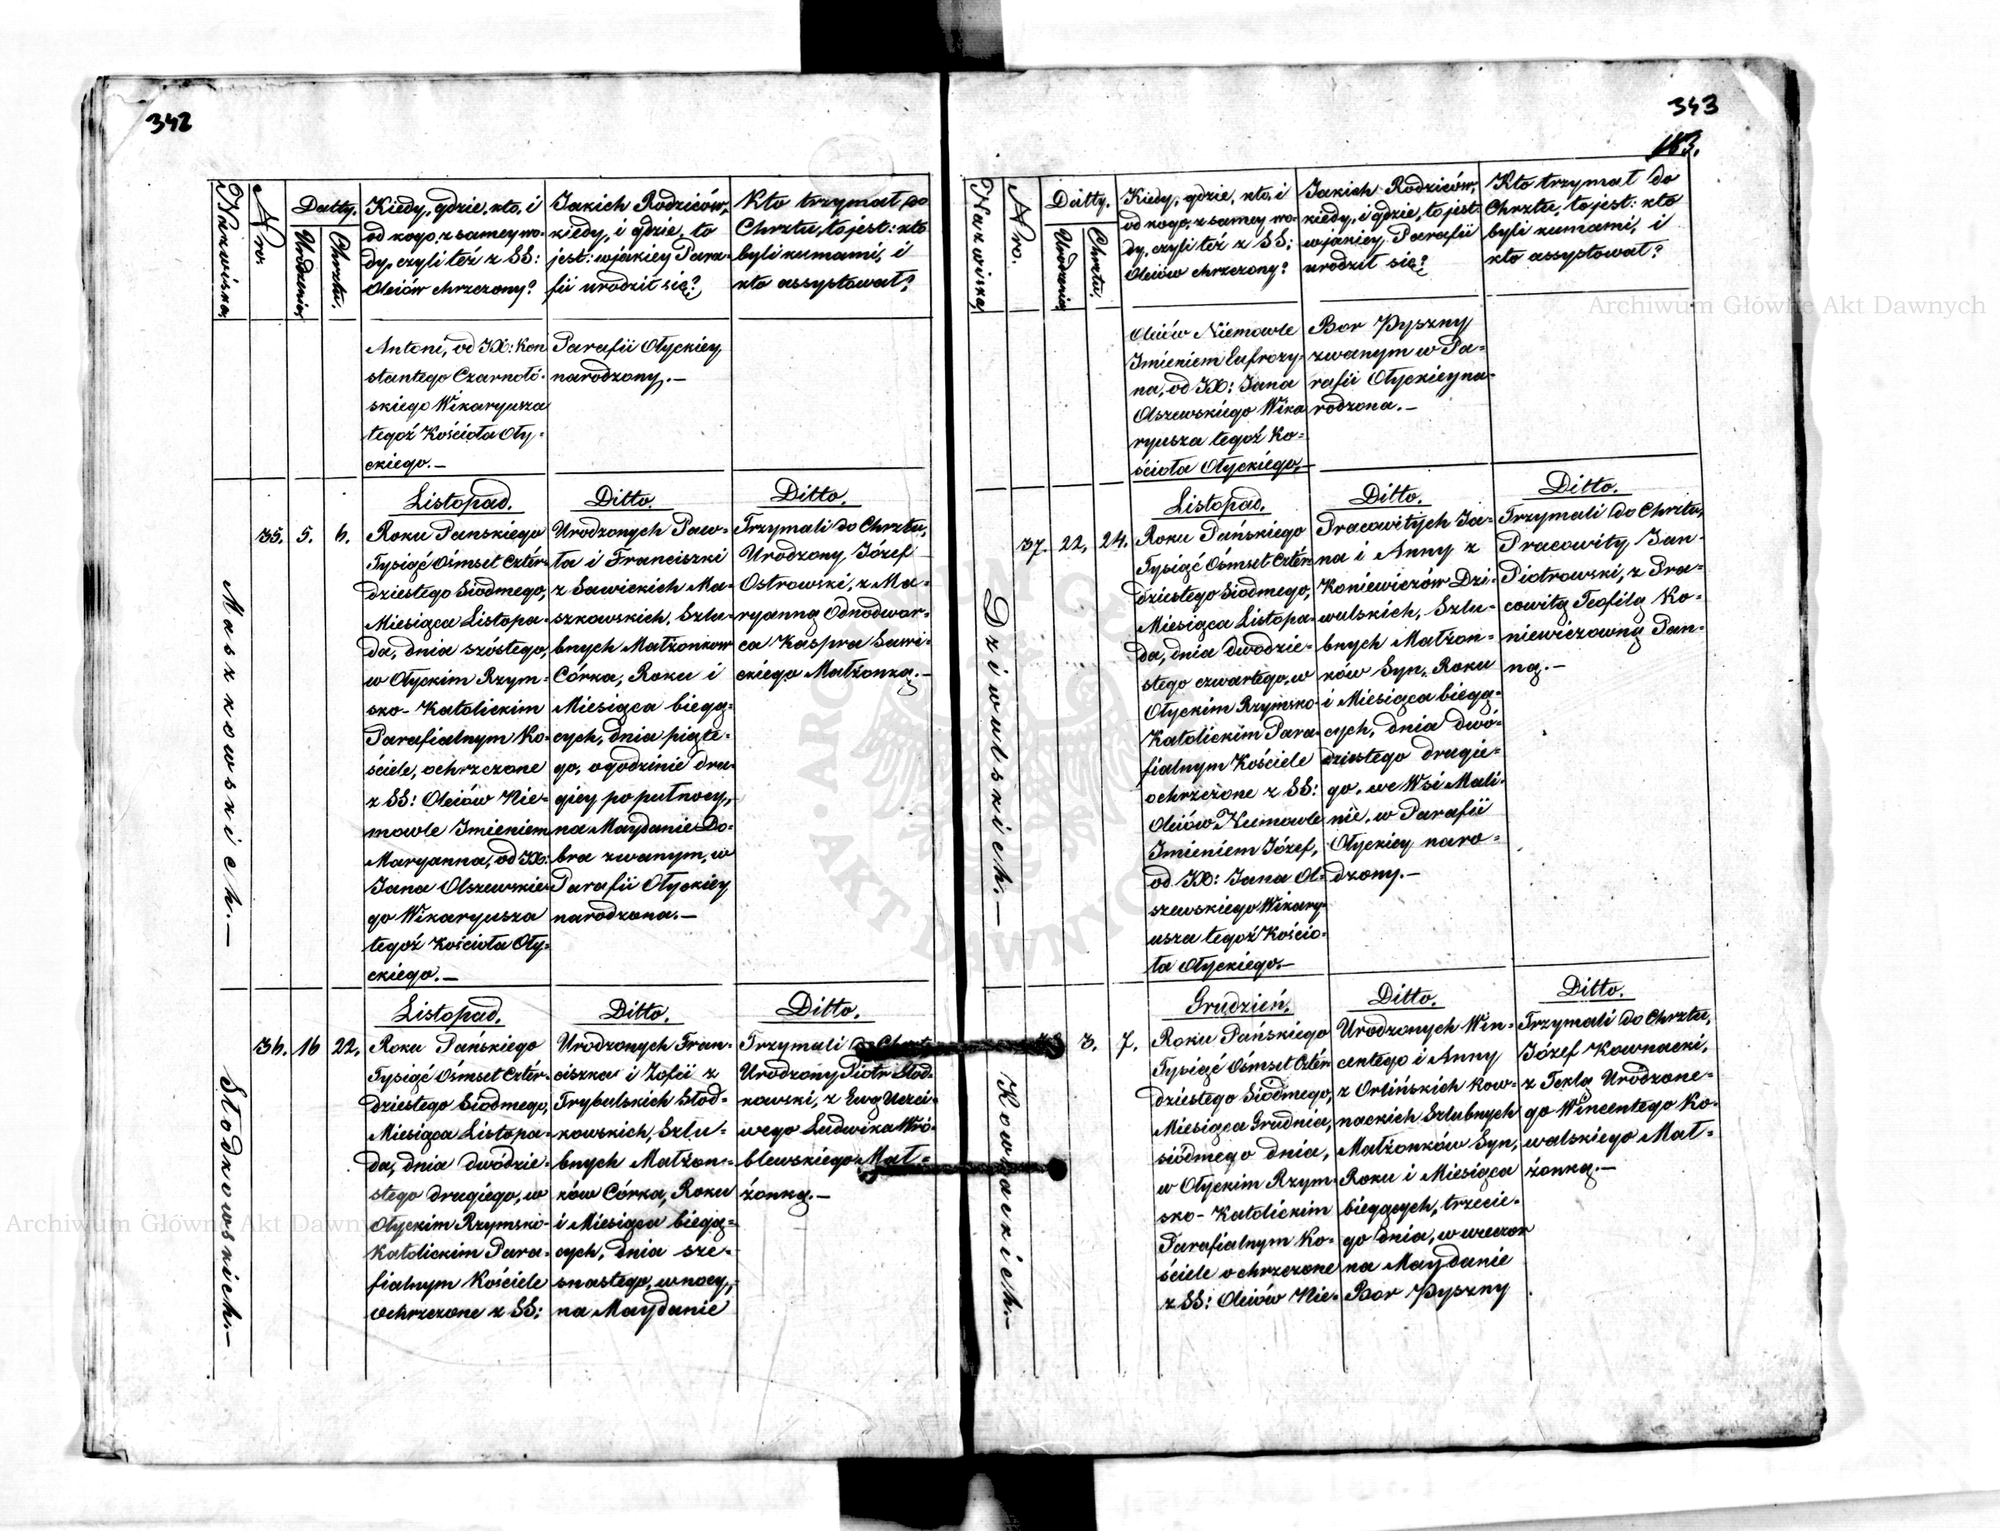 342
Nazwiska
Nro.
Datty.
Urodzenia
Chrztu.
Kiedy, gdzie, kto, i
od kogo, z samey wo-
dy, czyli też z SS:
Oleiów chrzczony?
Jakich Rodziców,
kiedy, i gdzie, to
jest: w jakiey Para-
fii urodził się?
Kto trzymał do
Chrztu, to jest: kto
byli kumami, i
kto assystował?
Antoni, od JX: Kon
stantego Czarnołó-
skiego Wikaryusza
tegoż Kościoła Oły-
ckiego.—
Parafii Ołyckiey,
narodzony.—
Maszkowskich.—
35.
5.
6.
Listopad.
Roku Panskiego
Tysiąć Ośmset Czter-
dziestego Siodmego,
Miesiąca Listopa-
da, dnia szóstego,
w Ołyckim Rzym-
sko- Katolickim
Parafialnym Ko-
ściele, ochrzczone
z SS: Oleiów Nie-
mowle Imieniem
Maryanna, od JX:
Jana Olszewskie-
go Wikaryusza
tegoż Kościoła Oły-
ckiego.—
Ditto.
Urodzonych Paw-
ła i Franciszki
z Sawickich Ma-
szkowskich, Szlu-
bnych Małżonkow
Córka, Roku i
Miesiąca biegą-
cych, dnia piąte-
go, o godzinie dru-
giey po pułnocy,
na Maydanie Do-
bra zwanym, w
Parafii Ołyckiey
narodzona.—
Ditto.
Trzymali do Chrztu,
Urodzony Józef
Ostrowski, z Ma-
ryanną Odnodwor-
ca Kaspra Sawi-
ckiego Małżonką.—
Słodkowskich.—
36.
16
22.
Listopad.
Roku Pańskiego
Tysiąć Ośmset Czter-
dziestego Siodmego,
Miesiąca Listopa-
da, dnia dwódzie-
stego drugiego, w
Ołyckim Rzymsko-
Katolickim Para-
fialnym Kościele
ochrzczone z SS:
Ditto.
Urodzonych Fran-
ciszka i Zofii z
Trybulskich Słod-
kowskich, Szlu-
bnych Małżon-
ków Córka, Roku
i Miesiąca biegą-
cych, dnia sze-
snastego, w nocy,
na Maydanie
Ditto.
Trzymali do Chrztu,
Urodzony Piotr Słod-
kowski, z Ewą Uczci-
wego Ludwika Wró-
blewskiego Mał-
żonką.—
343
183.
Nazwiska
Nro.
Datty.
Urodzenia
Chrztu.
Kiedy, gdzie, kto, i
od kogo, z samey wo-
dy, czyli też z SS:
Oleiów chrzczony?
Jakich Rodziców,
kiedy, i gdzie, to jest:
w jakiey Parafii
urodził się?
Kto trzymał do
Chrztu, to jest: kto
byli kumami, i
kto assystował?
Oleiów Niemowle
Imieniem Eufrozy-
na, od JX: Jana
Olszewskiego Wika
ryusza tegoż Ko-
ścioła Ołyckiego.—
Bor Pyszny
zwanym w Pa-
rafii Ołyckiey na-
rodzona.—
Dziwulskich.—
37.
22.
24.
Listopad.
Roku Pańskiego
Tysiąć Ośmset Czter-
dziestego Siodmego,
Miesiąca Listopa-
da, dnia dwodzie-
stego czwartego, w
Ołyckim Rzymsko-
Katolickim Para-
fialnym Kościele
ochrzczone z SS:
Oleiów Niemowle
Imieniem Józef,
od JX: Jana Ol-
szewskiego Wikary-
usza tegoż Kościo-
ła Ołyckiego.—
Ditto.
Pracowitych Ja-
na i Anny z
Koniewiczów Dzi-
wulskich, Szlu-
bnych Małżon-
ków Syn, Roku
i Miesiąca biegą-
cych, dnia dwó-
dziestego drugie-
go, we Wsi Mali-
nie, w Parafii
Ołyckiey naro-
dzony.—
Ditto.
Trzymali do Chrztu,
Pracowity Jan
Piotrowski, z Pra-
cowitą Teofilą Ko-
niewiczowną Pan-
ną.—
Kownackich.—
3.
7.
Grudzień.
Roku Pańskiego
Tysiąć Ośmset Czter
dziestego Siodmego,
Miesiąca Grudnia,
siódmego dnia,
w Ołyckim Rzym-
sko- Katolickim
Parafialnym Ko-
ściele ochrzczone
z SS: Oleiów Nie-
Ditto.
Urodzonych Win-
centego i Anny
z Orlińskich Kow-
nackich Szlubnych
Małżonków Syn,
Roku i Miesiąca
biegących, trzecie-
go dnia, w wieczor
na Maydanie
Bor Pyszny
Ditto.
Trzymali do Chrztu,
Józef Kownacki,
z Teklą Urodzone-
go Wincentego Ko-
walskiego Mał-
żonką.—
Archiwum Główne Akt Dawnych
Archiwum Główne Akt Dawnych